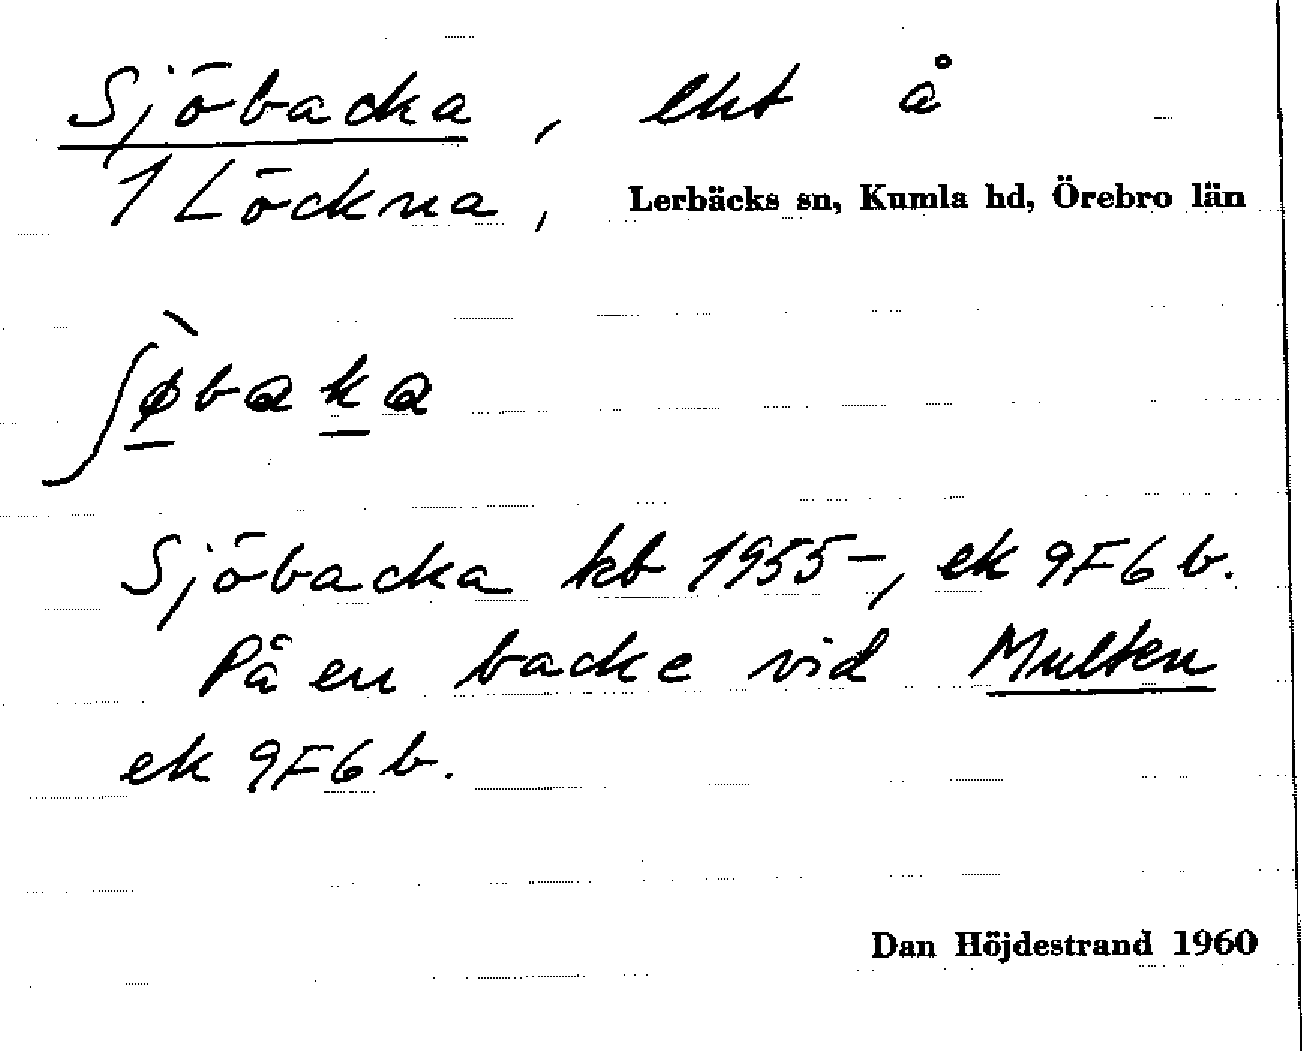 Sjöbacka, lht å
1 Löckna, Lerbäcks sn, Kumla hd, Örebro län
ʃø̀baka
Sjöbacka kb 1955–, ek 9F6b.
På en backe vid Multen
ek 9F6b.
Dan Höjdestrand 1960